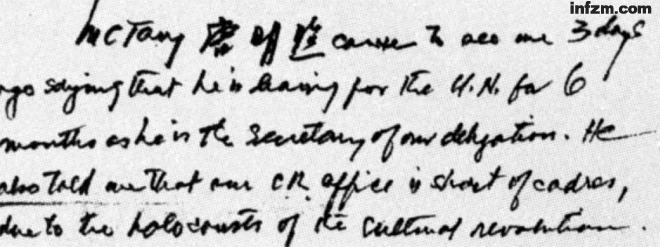 infzm.com
McTang 唐 came to see me 3 days
ago saying that he is leaving for the U.N. for 6
months as he is the Secretary of our delegation. He
also told me that our CR office is short of cadres,
due to the holocausts of the cultural revolution.